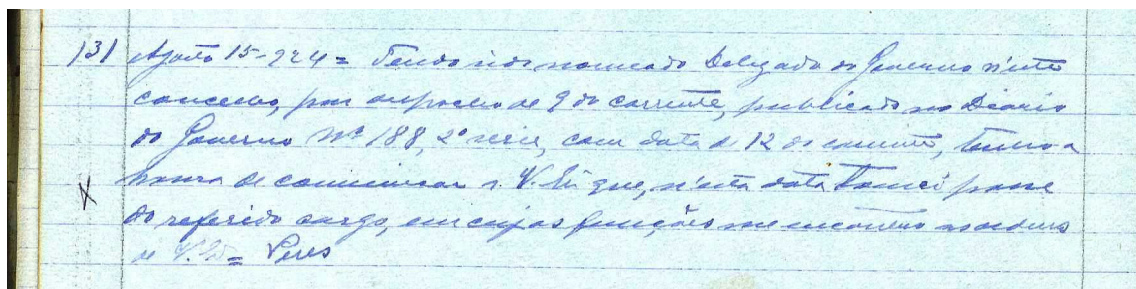 131 Agosto 15-924= Tendo sido nomeado Delegado do Governo n'este
concelho, por despacho de 9 do corrente, publicado no Diario
do Governo Nº 188, 2ª serie, com data de 12 do corrente, tenho a
honra de comunicar a V. Exª que, n'esta data tomei posse
X
do referido cargo, em cujas funções me encontro ás ordens
de V. Exª = Peres